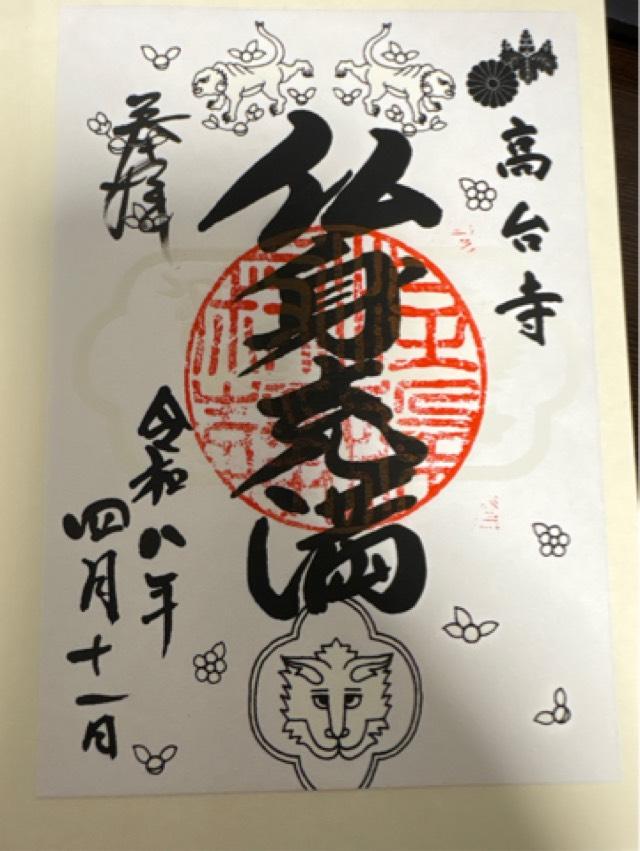 高台寺
仏身充満
奉拝
令和八年
四月十一日